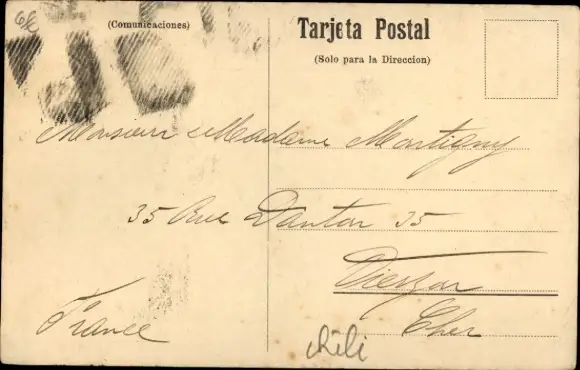 (Comunicaciones)
Tarjeta Postal
(Solo para la Direccion)
Monsieur & Madame Montigny
35 Rue Danton 35
Vierzon
Cher
France
Chili